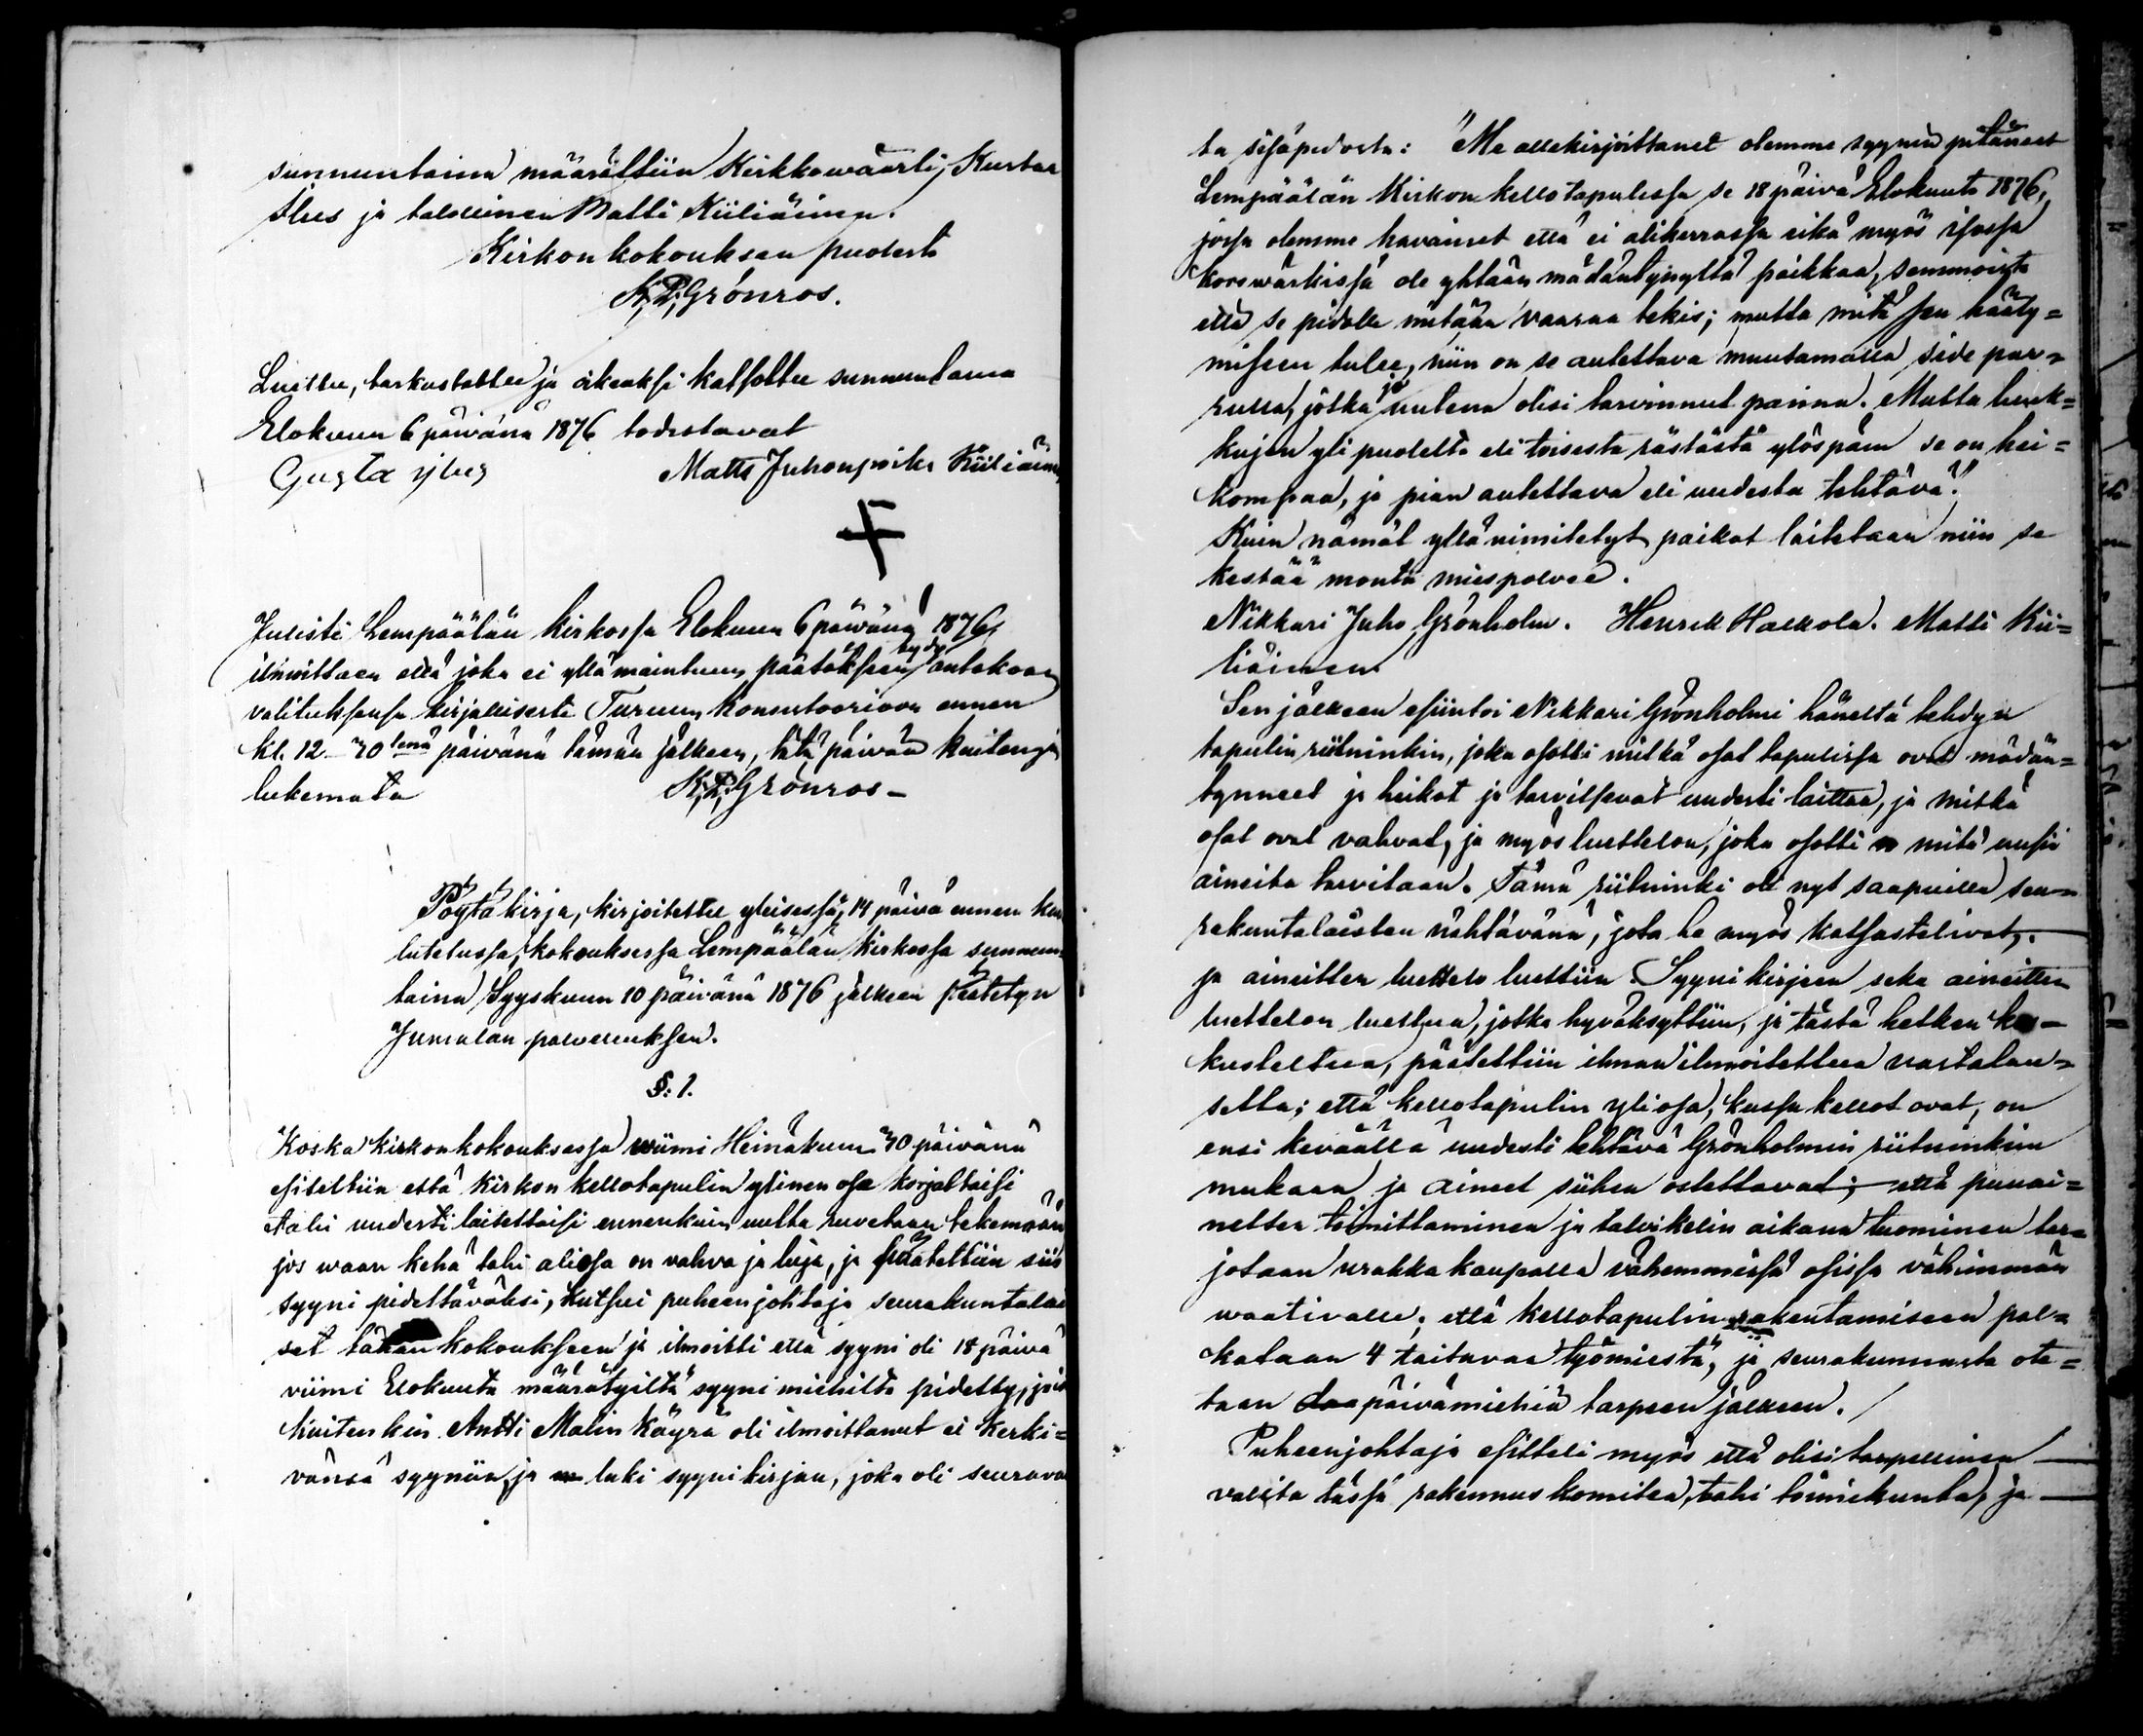 sunnuntaina määrättiin Kirkkowäärti, Kustaa
Ilves ja talollinen Matti Kiiliäinen.
Kirkonkokouksen puolesta
K. D. Grönros.
Luettu, tarkastettu ja oikeaksi katsottu sunnuntaina
Elokuun 6 päivänä 1876 todistavat
Gusta ylves
Matts Juhonpoika Kiiliäinen
Julisti Lempäälän kirkossa Elokuun 6 päivänä 1876,
ilmoittaen että joka ei yllä mainittuun päätökseen tydy antakoon
valituksensa kirjallisesti Turuun Konsistoorioon ennen
kl. 12 30tenä päivänä tämän jälkeen, tätä päivää kuitengin
lukemata
K. D. Grönros
Pöytäkirja, kirjoitettu yleisessä, 14 päivä ennen kuu
lutetussa, kokouksessa Lempäälän kirkossa sunnun
taina Syyskuun 10 päivänä 1876 jälkeen päätetyn
Jumalan palveluksen.
§: 1.
Koska kirkonkokouksessa wiimi Heinäkuun 30 päivänä
esiteltiin että kirkon kellotapulin ylinen osa korjattaisi
tahi uudesti laitettaisi ennenkuin uutta ruvetaan tekemään
jos waan kehä tahi aliosa on vahva ja luja, ja päätettiin siis
syyni pidettäväksi, kutsui puheenjohtaja seurakuntalai
set tähän kokoukseen ja ilmoitti että syyni oli 18 päivä
viimi Elokuuta määrätyiltä syyni miehiltä pidetty, jois
kuitenkin Antti Malin Käyrä oli ilmoittanut ei kerki=
vänsä syyniin, ja luki syynikirjan, joka oli seurava
ta sisäpidosta: "Me allekirjoittanet olemme syynin pitäneet
Lempäälän Kirkon kellotapulissa se 18 päivä Elokuuta 1876,
jossa olemme havainet että ei alikerrassa eikä myös isossa
korswärkissä ole yhtään mädäntynyttä paikkaa, semmoista
että se pidolle mitään vaaraa tekis; mutta mitä sen hääty=
miseen tulee, niin on se autettava muutamalla side par=
rulla, jotka jo uutena olisi tarvinnut panna. Mutta luuk=
kujen yli puolelta eli toisesta rästästä ylöspäin se on hei=
kompaa, ja pian autettava eli uudesta tehtävä."
Kuin nämät yllä nimitetyt paikat laitetaan niin se
kestää monta miespolvee.
Nikkari Juho Grönholm. Henrik Halkola. Matti Kii=
liäinen
Sen jälkeen esiintoi Nikkari Grönholmi häneltä tehdyn
tapulin riitninkin, joka osotti mitkä osat tapulissa ovat mädän=
tynneet ja heikot ja tarvitsevat uudesti laittaa, ja mitkä
osat ovat vahvat, ja myös luettelon, joka osotti mitä uusia
aineita tarvitaan. Tämä riitninki oli nyt saapuilla seu=
rakuntalaisten nähtävänä, jota he myös katsastelivat,
ja aineitten luettelo luettiin. Syyni kirjeen seka aineitten
luettelon luettua, jotka hyväksyttiin, ja tästä hetken kes=
kusteltua, päätettiin ilman ilmoitettua vastalau=
setta; että kellotapulin yliosa, kussa kellot ovat, on
ensi keväällä uudesti tehtävä Grönholmin riitninkin
mukaan ja aineet siihen ostettavat; että punai=
netten toimittaminen ja talvikelin aikana tuominen tar=
jotaan urakka kaupalla vähemmissä osissa vähimmän
waativalle; että kellotapulin rakentamiseen pal=
kataan 4 taitavaa työmiestä, ja seurakunnasta ote=
taan päivämiehiä tarpeen jälkeen.
Puheenjohtaja esitteli myös että olisi tarpellinen
valita tässä rakennuskomitea, tahi toimikunta, ja